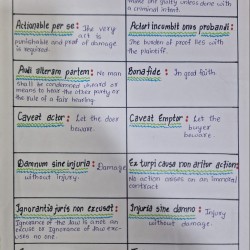 make one guilty unless done with
a criminal intent.
Actionable per se: The very
act is
punishable and proof of damage
is required.
Actori incumbit onus probandi:
The burden of proof lies with the
plaintiff.
Audi alteram partem: No man
shall be condemned unheard or
means to hear the other party or
the rule of a fair hearing.
Bonafide: In good faith
Caveat actor: Let the doer
beware.
Caveat Emptor: Let the
buyer
beware
Damnum sine injuria: Damage
without injury.
Ex turpi causa non oritur actio:
No action arises on an immoral
contract
Ignorantia juris non excusat:
Ignorance of the law is not an
excuse or Ignorance of law exc-
uses no one.
Injuria sine damno: Injury
without
Damage.